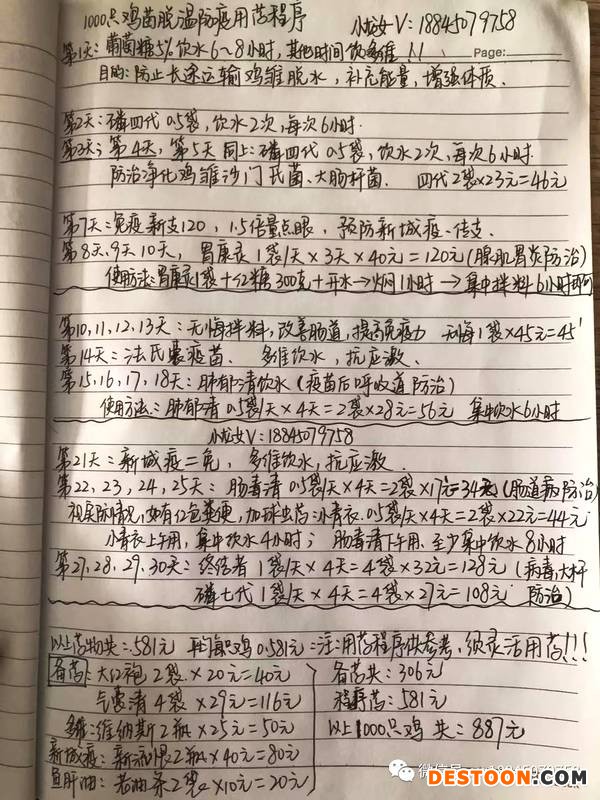 1000只鸡苗脱温防疫用药程序 小龙女V:18845079758
第1天:葡萄糖5%饮水6~8小时,其他时间饮多维!!
Page:
目的:防止长途运输鸡雏脱水,补充能量,增强体质.
第2天:磷四代0.5袋,饮水2次,每次6小时.
第3天;第4天,第5天同上:磷四代0.5袋,饮水2次,每次6小时.
防治净化鸡雏沙门氏菌、大肠杆菌. 四代2袋×23元=46元
第7天:免疫新支120,1.5倍量点眼,预防新城疫、传支.
第8天、9天10天,胃康灵1袋/天×3天×40元=120元(腺肌胃炎防治)
使用方法:胃康灵1袋+红糖300克+开水→焖1小时→集中拌料6小时
第10,11,12,13天:无悔拌料,改善肠道,提高免疫力 无悔1袋×45元=45
第14天:法氏囊疫苗. 多维饮水,抗应激.
第15,16,17,18天:肺郁清饮水(疫苗后呼吸道防治)
使用方法:肺郁清0.5袋/天×4天=2袋×28元=56元 集中饮水6小时
小龙女V:18845079758
第21天:新城疫二免,多维饮水,抗应激.
第22,23,24,25天:肠毒清0.5袋/天×4天=2袋×17元=34元(肠道病防治)
视实际情况,如有红色粪便,加球虫药:小青衣.0.5袋/天×4天=2袋×22元=44元
小青衣上午用,集中饮水4小时;肠毒清下午用、至少集中饮水8小时
第27,28,29,30天:终结者1袋/天×4天=4袋×32元=128元(病毒,大杆
磷七代1袋/天×4天=4袋×27元=108元 防治)
以上药物共:581元 平均每只鸡0.581元 注:用药程序供参考,须灵活用药!!!
备药:大红袍2袋×20元=40元 备药共:306元
气囊清4袋×29元=116元 程序药:581元
多维:维纳斯2瓶×25元=50元 以上1000只鸡共:887元
新城疫:新流恨2瓶×40元=80元
鱼肝油:若油条2袋×10元=20元
微信号:18845079758
DESTOON.COM